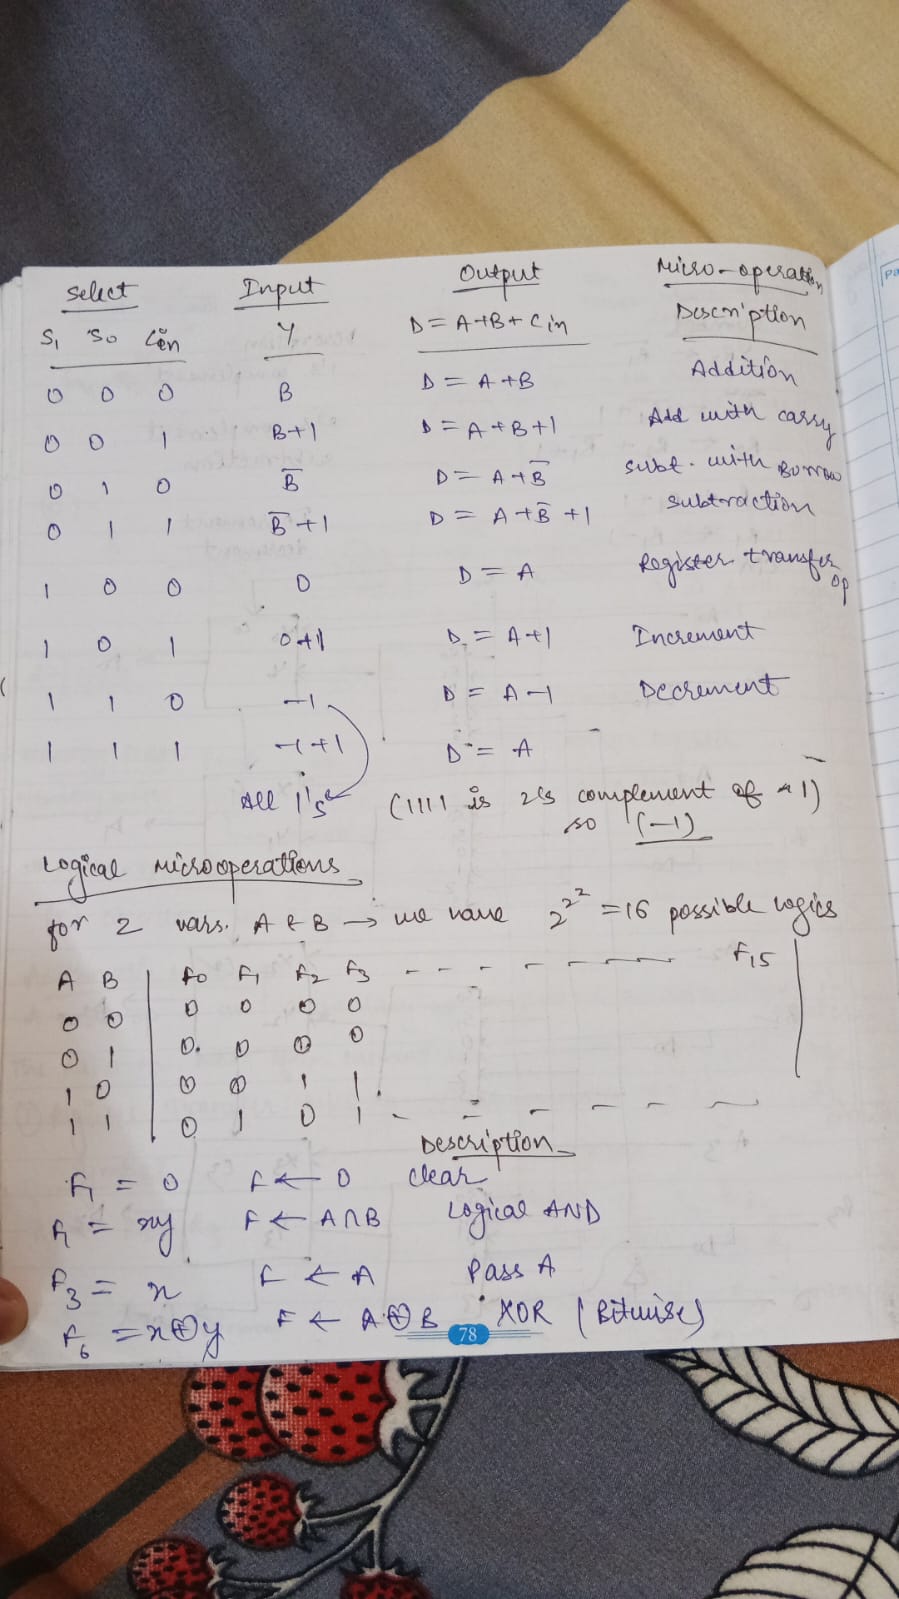 Select Input Output Micro-operation
S₁ S₀ Cin Y D = A+B+Cin Description
0 0 0 B D = A+B Addition
0 0 1 B+1 D = A+B+1 Add with carry
0 1 0 B̅ D = A+B̅ Subt. with Borrow
0 1 1 B̅+1 D = A+B̅+1 Subtraction
1 0 0 0 D = A Register transfer op
1 0 1 0+1 D = A+1 Increment
1 1 0 -1 D = A-1 Decrement
1 1 1 -1+1 D = A
All 1's (1111 is 2's complement of 1)
so (-1)
Logical microoperations
for 2 vars. A & B → we have 2^2^2 = 16 possible logics
A B F0 F1 F2 F3 - - - - - - - F15
0 0 0 0 0 0
0 1 0 0 0 0
1 0 0 0 1 1
1 1 0 1 0 1 - - - - - -
Description
F1 = 0 F ← 0 clear
F1 = xy F ← A∩B Logical AND
F3 = x F ← A Pass A
F6 = x⊕y F ← A⊕B XOR (Bitwise)
78